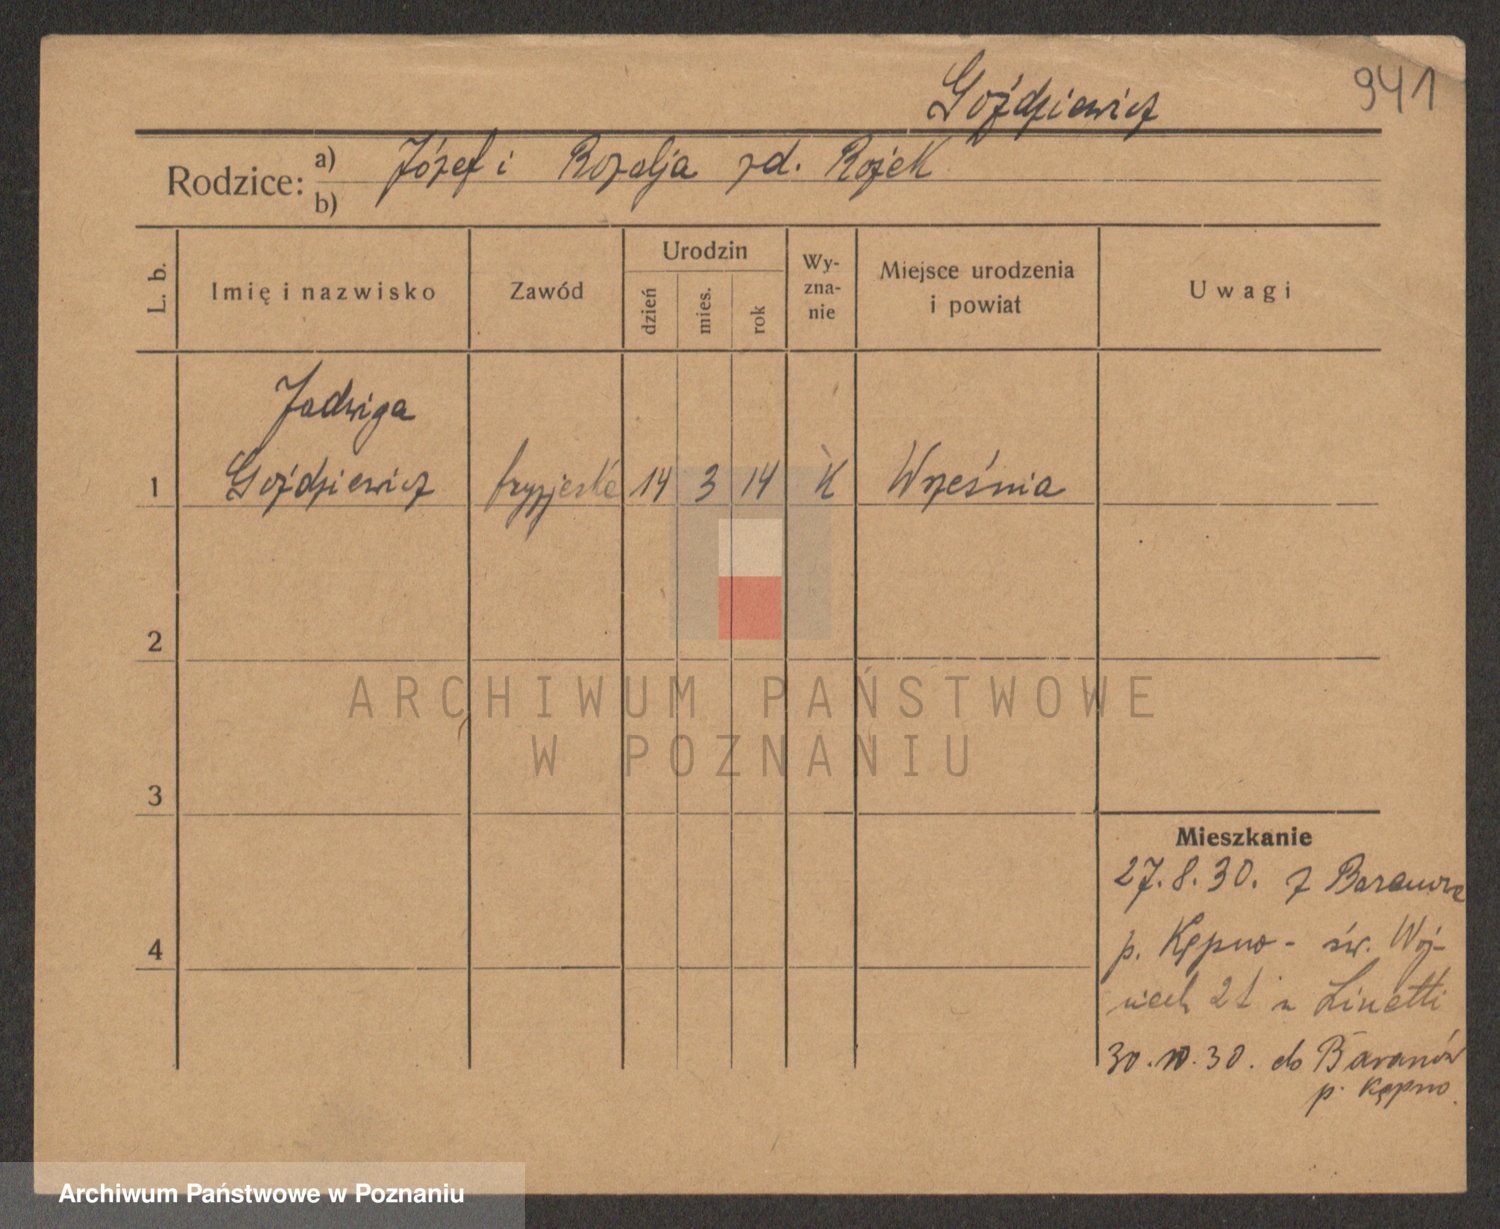 Goździewicz 941
Rodzice: a) Józef i Rozalja zd. Rożek
b)
L. b. Imię i nazwisko Zawód Urodzin dzień mies. rok Wyznanie Miejsce urodzenia i powiat Uwagi
Jadwiga
1 Goździewicz 14 3 14 K Września
2
ARCHIWUM PAŃSTWOWE
W POZNANIU
3
Mieszkanie
27.8.30. z Baranowa
4 p. Kępno - św. Woj-
ciech 21 u Linetti
30.10.30. do Baranów
p. Kępno.
Archiwum Państwowe w Poznaniu